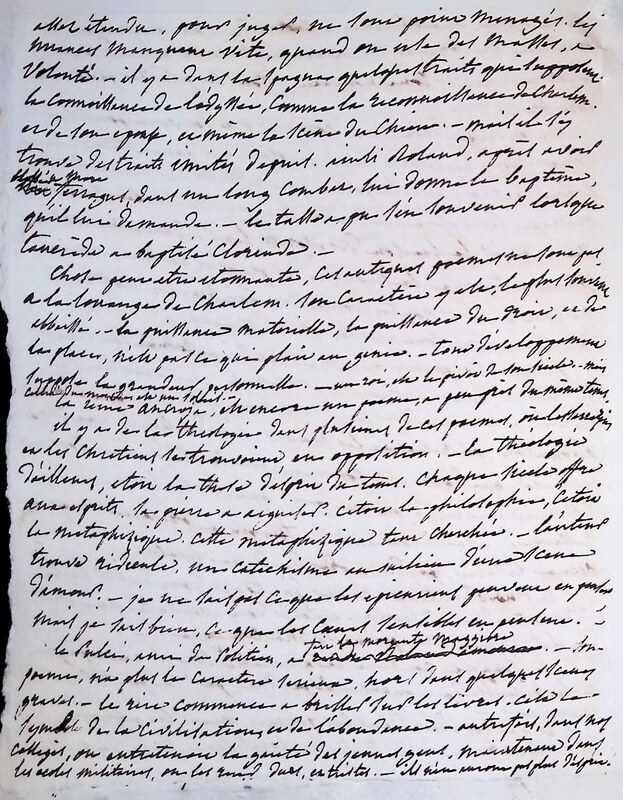 assez étendu, pour juger, ne sont point menagés. les
nuances manquent vite, quand on use des masses, a
volonté. - il y a dans la quelques traits que supposent
la connaissance de l'odyssée, comme la reconnoissance de Charlem.
et de son epouse, et même la scène du chien. - mais il s'y
trouve des traits imités depuis. ainsi Roland, après avoir
blessé a mort
ferragus, dans un long combat, lui donne le baptême,
qu'il lui demande. - le tasse a pu s'en souvenir lorsque
tancrède a baptisé Clorinde. -
Chose peut être étonnante, ces antiques poemes ne sont pas
a la louange de Charlem. son caractère y est, le plus souvent
abbaissé. - la puissance matérielle, la puissance du droit, et de
la place, n'est pas ce qui plait au genie. - tout développement
suppose la grandeur personnelle. - un roi, est le pivot de son siecle. - mais
la reine ancroja, est encore un poeme, a peu près du même tems.
il y a de la théologie dans plusieurs de ces poemes, où les
et les Chretiens se trouvoient en opposition. - la théologie
d'ailleurs, etoit la chose d'esprit du tems. Chaque siecle offre
aux esprits, la pierre a aiguiser. c'etoit la philosophie, c'etoit
la metaphizique. cette metaphizique tant cherchée. - l'auteur
trouve ridicule, un catechisme au milieu d'une scene
d'amour. - je ne sais pas ce que les en penser
mais je sais bien, ce que les coeurs sensibles en pensent. -
le Pulci, ami de Politien, a fait le morgante maggiore
- son
poeme, n'a plus le caractère serieux, hors dans quelques scenes
graves. - le rire commence a briller sur les livres. c'est le
symbole de la civilisation, et de l'abondance. - autrefois, dans nos
colleges, on entretenoit la gaieté des jeunes gens, maintenant dans
les ecoles militaires, on les rend durs, et tristes. - ils n'en auront pas plus d'esprit.